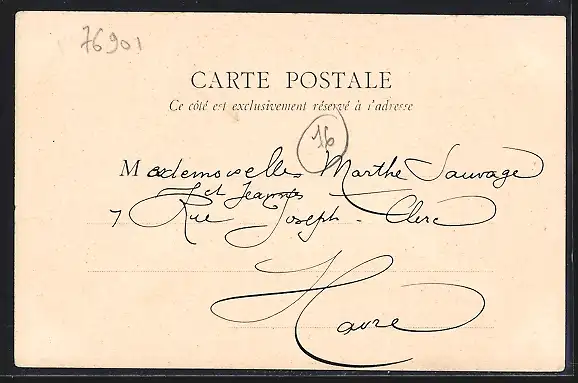 76901
CARTE POSTALE
Ce côté est exclusivement réservé à l'adresse
16
Mademoiselles Marthe Sauvage
et Jeanne
7 Rue Joseph-Clerc
Havre